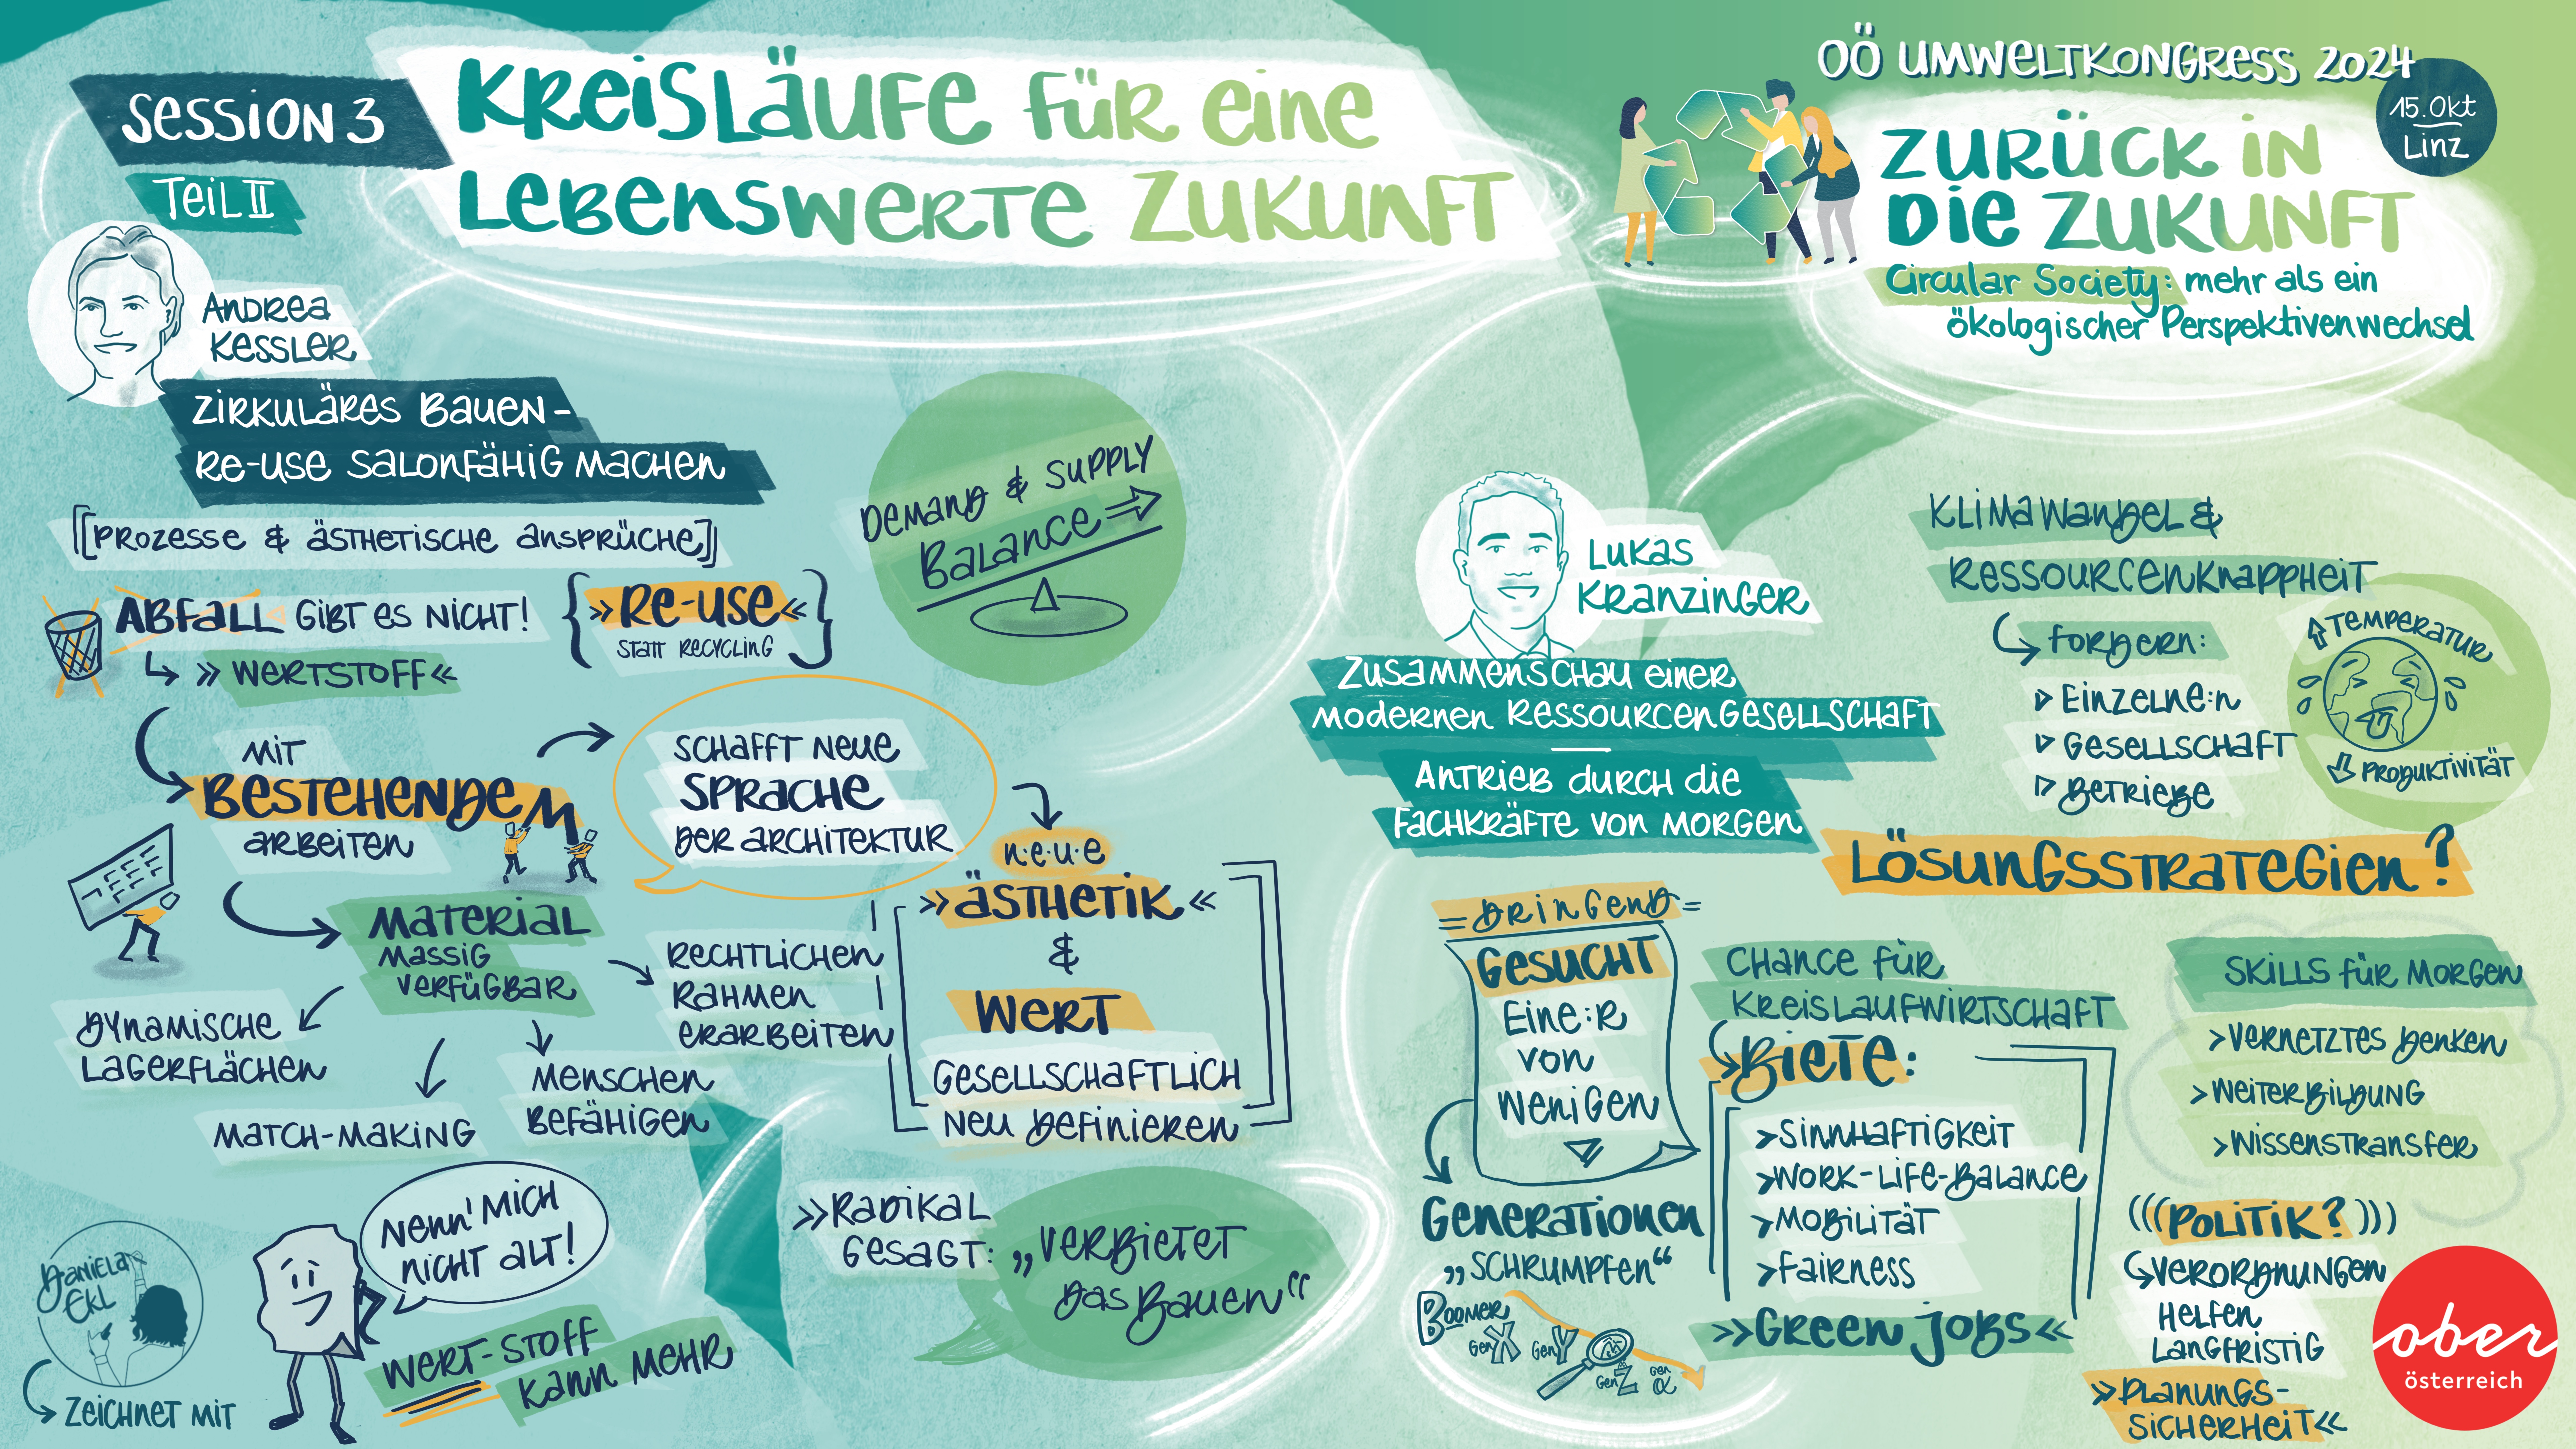 SESSION 3
TEIL II
KREISLÄUFE FÜR EINE
LEBENSWERTE ZUKUNFT
OÖ UMWELTKONGRESS 2024
15. Okt
Linz
ZURÜCK IN
DIE ZUKUNFT
Circular Society: mehr als ein
ökologischer Perspektivenwechsel
ANDREA
KESSLER
ZIRKULÄRES BAUEN -
RE-USE SALONFÄHIG MACHEN
[[PROZESSE & ÄSTHETISCHE ANSPRÜCHE]]
ABFALL GIBT ES NICHT!
» WERTSTOFF «
{ » RE-USE « }
STATT RECYCLING
DEMAND & SUPPLY
BALANCE ⇒
MIT
BESTEHENDEM
ARBEITEN
SCHAFFT NEUE
SPRACHE
DER ARCHITEKTUR
N·E·U·E
» ÄSTHETIK «
&
WERT
GESELLSCHAFTLICH
NEU DEFINIEREN
MATERIAL
MASSIG
VERFÜGBAR
DYNAMISCHE
LAGERFLÄCHEN
MATCH-MAKING
MENSCHEN
BEFÄHIGEN
RECHTLICHEN
RAHMEN
ERARBEITEN
NENN' MICH
NICHT ALT!
WERT-STOFF
KANN MEHR
» RADIKAL
GESAGT:
„VERBIETET
DAS BAUEN“
DANIELA
EKL
ZEICHNET MIT
LUKAS
KRANZINGER
ZUSAMMENSCHAU EINER
MODERNEN RESSOURCENGESELLSCHAFT
ANTRIEB DURCH DIE
FACHKRÄFTE VON MORGEN
KLIMAWANDEL &
RESSOURCENKNAPPHEIT
FORDERN:
EINZELNE:N
GESELLSCHAFT
BETRIEBE
TEMPERATUR
PRODUKTIVITÄT
LÖSUNGSSTRATEGIEN?
= DRINGEND =
GESUCHT
EINE:R
VON
WENIGEN
GENERATIONEN
„SCHRUMPFEN“
BOOMER
GEN X
GEN Y
GEN Z
GEN α
CHANCE FÜR
KREISLAUFWIRTSCHAFT
BIETE:
> SINNHAFTIGKEIT
> WORK-LIFE-BALANCE
> MOBILITÄT
> FAIRNESS
» GREEN JOBS «
SKILLS FÜR MORGEN
> VERNETZTES DENKEN
> WEITERBILDUNG
> WISSENSTRANSFER
(((POLITIK?)))
VERORDNUNGEN
HELFEN
LANGFRISTIG
» PLANUNGS-
SICHERHEIT «
ober
österreich